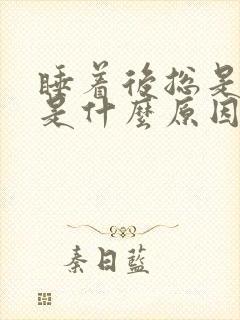 睡着後总是
是什麼原因
秦日藍